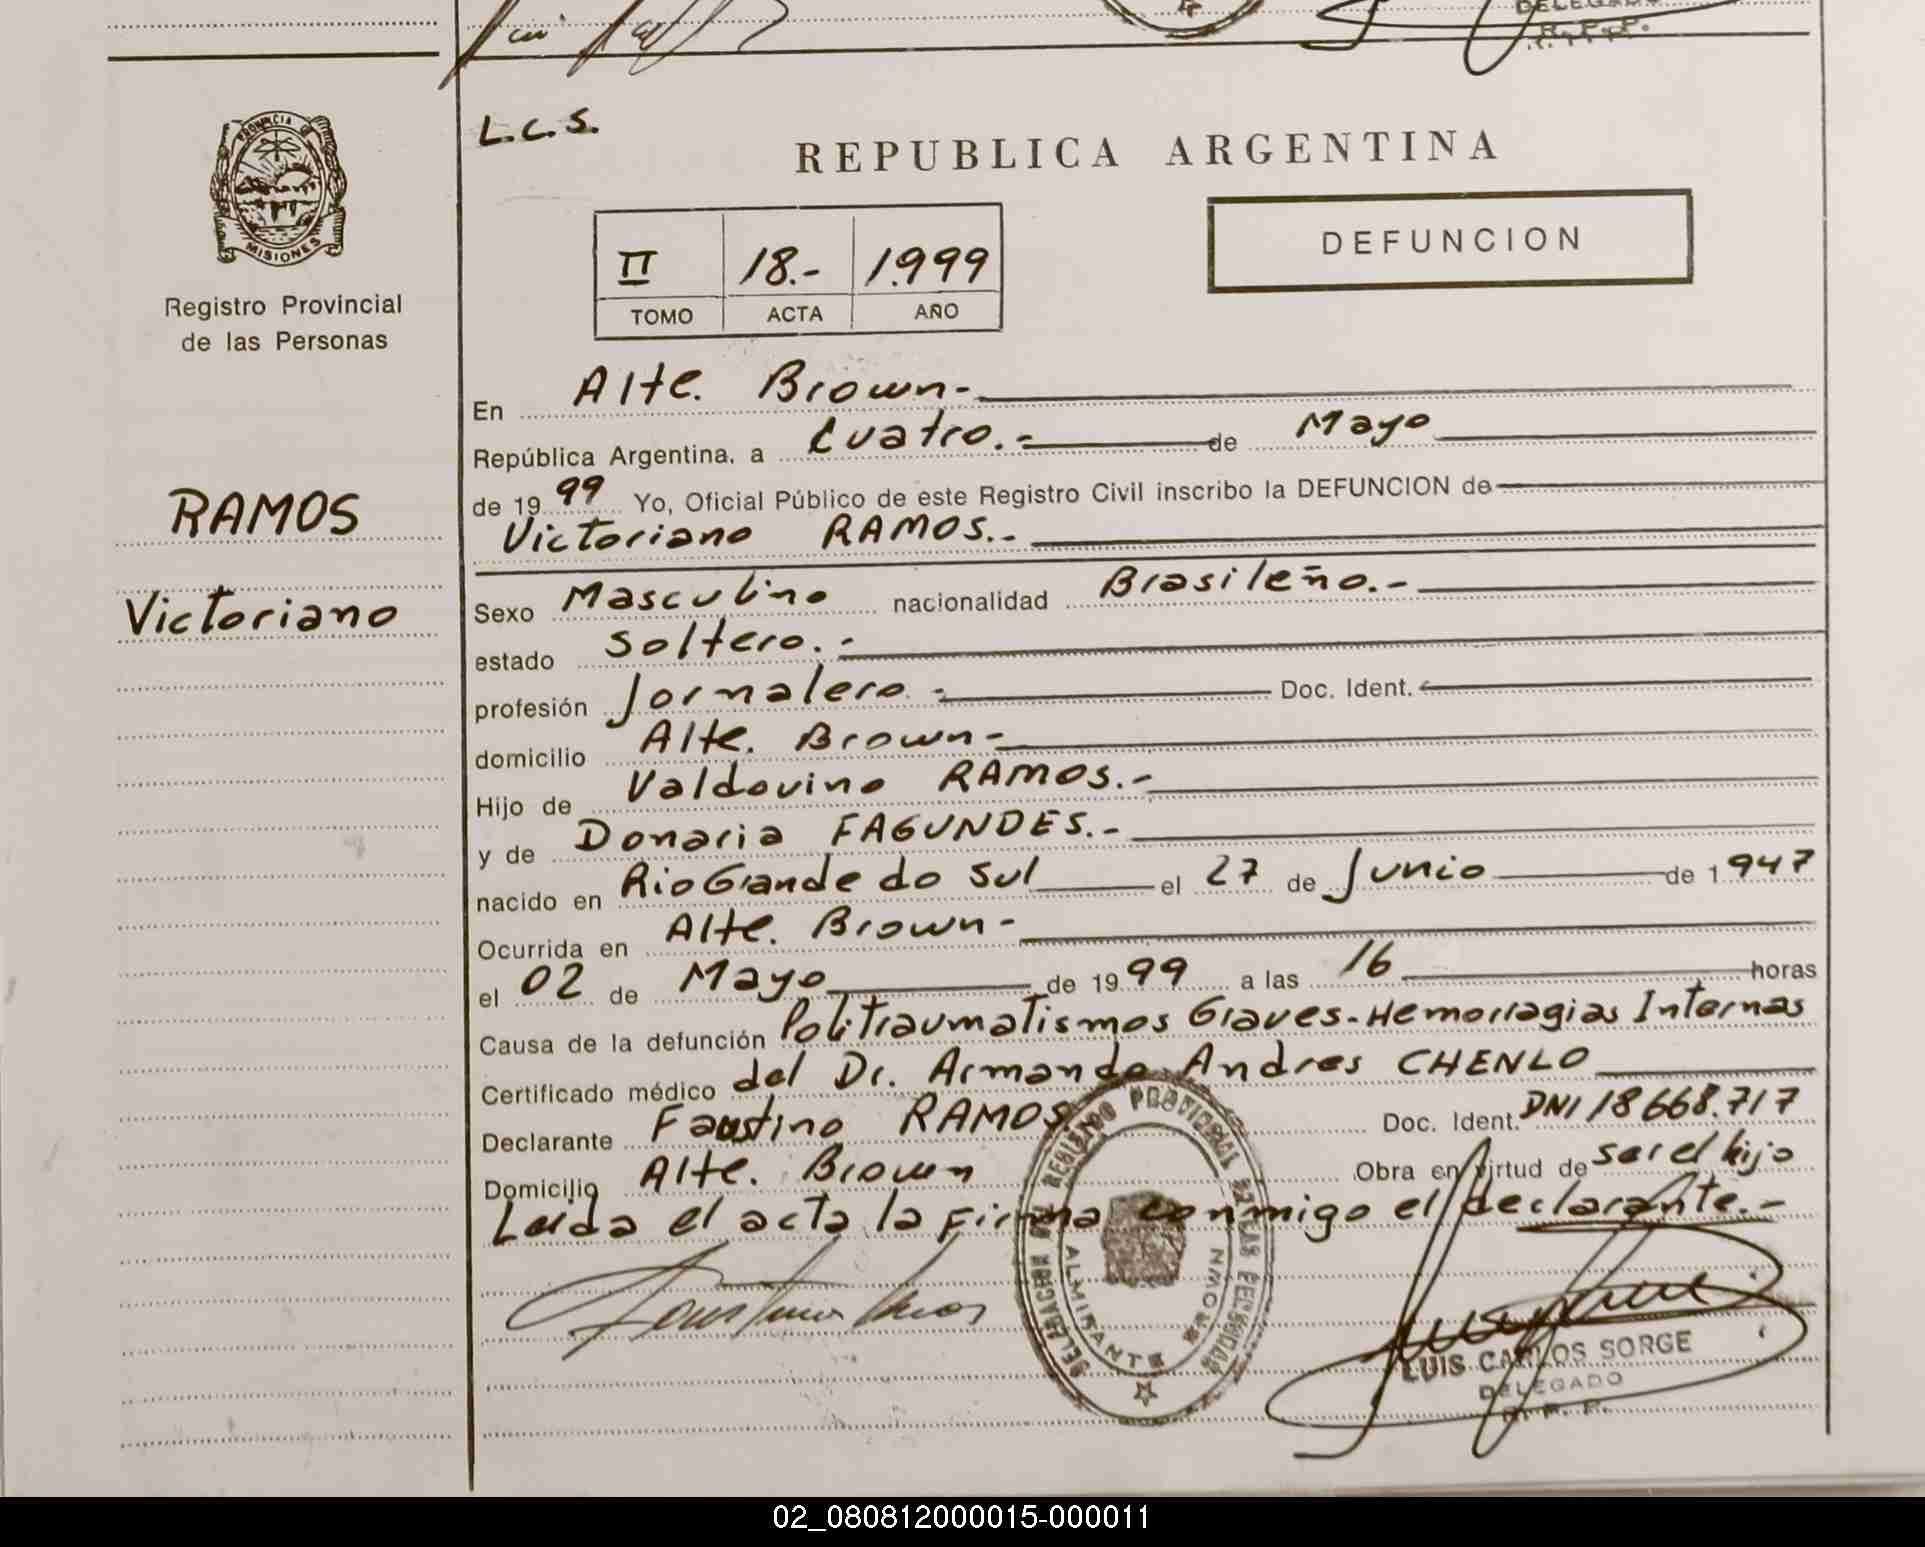 DELEGADO
R. P. P.
PROVINCIA DE
MISIONES
Registro Provincial
de las Personas
RAMOS
Victoriano
L.C.S.
REPUBLICA ARGENTINA
II 18.- 1.999
TOMO ACTA AÑO
DEFUNCION
En Alte. Brown.-
República Argentina, a Cuatro.- de Mayo
de 19 99 Yo, Oficial Público de este Registro Civil inscribo la DEFUNCION de
Victoriano RAMOS.-
Sexo Masculino nacionalidad Brasileño.-
estado Soltero.-
profesión Jornalero.- Doc. Ident.
domicilio Alte. Brown-
Hijo de Valdovino RAMOS.-
y de Donaria FAGUNDES.-
nacido en Rio Grande do Sul el 27 de Junio de 1947
Ocurrida en Alte. Brown-
el 02 de Mayo de 1999 a las 16 horas
Causa de la defunción Politraumatismos Graves-Hemorragias Internas
Certificado médico del Dr. Armando Andres CHENLO
Declarante Faustino RAMOS. Doc. Ident. DNI 18668.717
Domicilio Alte. Brown Obra en virtud de ser el hijo
Leida el acta la Firma conmigo el declarante.-
Faustino Ramos
DELEGACION DE REGISTRO PROVINCIAL DE LAS PERSONAS
ALMIRANTE BROWN
LUIS CARLOS SORGE
DELEGADO
R. P. P.
02_080812000015-000011